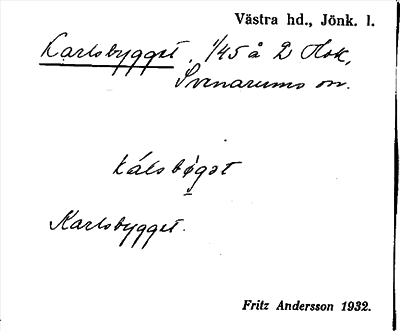 Västra hd., Jönk. l.
Karlsbygget, 1/45 å 2 Hok,
Svenarums sn.
kálsbø̀gət
Karlsbygget.
Fritz Andersson 1932.